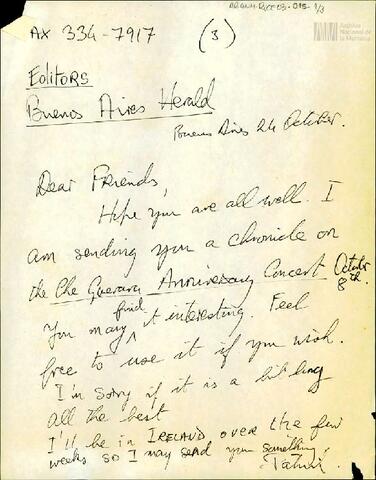 1/3
Archivo
Nacional de
la Memoria
AX 334-7917 (3)
Editors
Buenos Aires Herald
Buenos Aires 24 October.
Dear Friends,
Hope you are all well. I
am sending you a chronicle on
the Che Guevara Anniversary Concert October
8th.
You may find it interesting. Feel
free to use it if you wish.
I'm sorry if it is a bit long
All the best
I'll be in IRELAND over the few
weeks so I may send you something